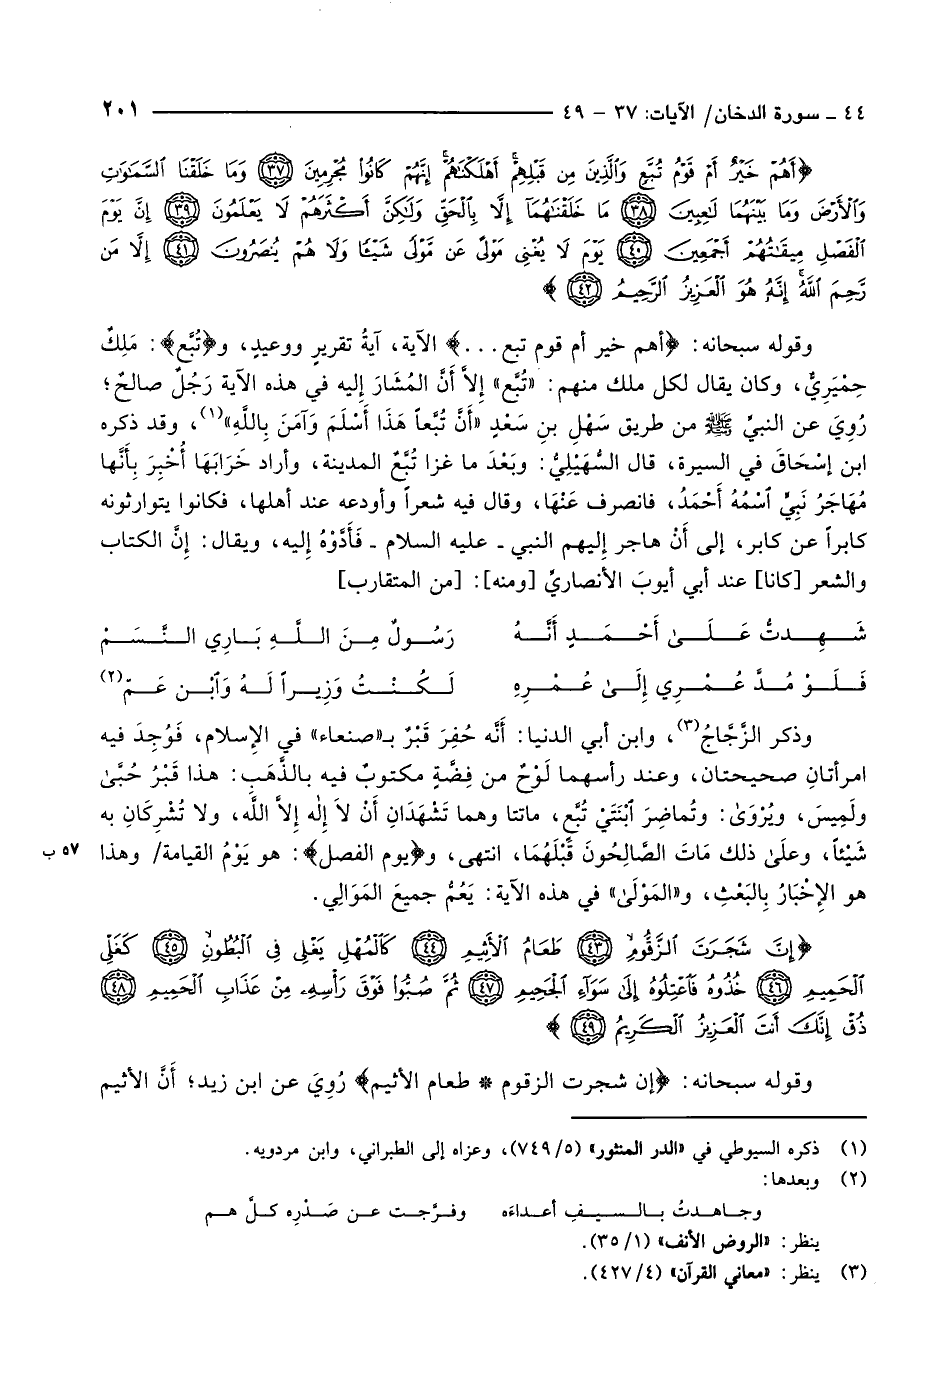 ٤٤ ـ سورة الدخان/ الآيات: ٣٧ - ٤٩ ٢٠١
﴿أَهُمْ خَيْرٌ أَمْ قَوْمُ تُبَّعٍ وَٱلَّذِينَ مِن قَبْلِهِمْ أَهْلَكْنَٰهُمْ إِنَّهُمْ كَانُوا۟ مُجْرِمِينَ (٣٧) وَمَا خَلَقْنَا ٱلسَّمَٰوَٰتِ
وَٱلْأَرْضَ وَمَا بَيْنَهُمَا لَٰعِبِينَ (٣٨) مَا خَلَقْنَٰهُمَآ إِلَّا بِٱلْحَقِّ وَلَٰكِنَّ أَكْثَرَهُمْ لَا يَعْلَمُونَ (٣٩) إِنَّ يَوْمَ
ٱلْفَصْلِ مِيقَٰتُهُمْ أَجْمَعِينَ (٤٠) يَوْمَ لَا يُغْنِى مَوْلًى عَن مَّوْلًى شَيْـًٔا وَلَا هُمْ يُنصَرُونَ (٤١) إِلَّا مَن
رَّحِمَ ٱللَّهُ إِنَّهُۥ هُوَ ٱلْعَزِيزُ ٱلرَّحِيمُ (٤٢)﴾
وقوله سبحانه: ﴿أهم خير أم قوم تبع ...﴾ الآية، آيةُ تقريرٍ ووعيدٍ، و﴿تُبَّع﴾: مَلِكٌ
حِمْيَرِيٌّ، وكان يقال لكل ملك منهم: «تُبَّع» إِلاَّ أَنَّ المُشَارَ إليه في هذه الآية رَجُلٌ صالحٌ؛
رُوِيَ عن النبيِّ ﷺ من طريق سَهْلِ بنِ سَعْدٍ «أَنَّ تُبَّعاً هَذَا أَسْلَمَ وَآمَنَ بِاللَّهِ»(١)، وقد ذكره
ابن إسْحَاقَ في السيرة، قال السُّهَيْلِيُّ: وبَعْدَ ما غزا تُبَّعٌ المدينة، وأراد خَرَابَهَا أُخْبِرَ بِأَنَّها
مُهَاجَرُ نَبِيٍّ ٱسْمُهُ أَحْمَدُ، فانصرف عَنْهَا، وقال فيه شعراً وأودعه عند أهلها، فكانوا يتوارثونه
كابراً عن كابر، إلى أَنْ هاجر إليهم النبي ـ عليه السلام ـ فَأَدَّوْهُ إليه، ويقال: إنَّ الكتاب
والشعر [كانا] عند أبي أيوبَ الأنصاريِّ [ومنه]: [من المتقارب]
شَهِدتُّ عَلَىٰ أَحْمَدٍ أَنَّهُ رَسُولٌ مِنَ اللَّهِ بَارِي النَّسَمْ
فَلَوْ مُدَّ عُمْرِي إِلَىٰ عُمْرِهِ لَكُنْتُ وَزِيراً لَهُ وَٱبْنِ عَمّْ(٢)
وذكر الزَّجَّاجُ(٣)، وابن أبي الدنيا: أَنَّه حُفِرَ قَبْرٌ بـ«صنعاء» في الإسلام، فَوُجِدَ فيه
امرأتانِ صحيحتان، وعند رأسهما لَوْحٌ من فِضَّةٍ مكتوبٌ فيه بالذَّهَبِ: هذا قَبْرُ حُبَّىٰ
ولَمِيسَ، ويُرْوَىٰ: وتُماضِرَ ٱبْنَتَيْ تُبَّعٍ، ماتتا وهما تَشْهَدَانِ أَنْ لاَ إلٰه إلاَّ الله، ولا تُشْرِكَانِ به
شَيْئاً، وعلَىٰ ذلك مَاتَ الصَّالِحُونَ قَبْلَهُمَا، انتهى، و﴿يوم الفصل﴾: هو يَوْمُ القيامة/ وهذا ٥٧ ب
هو الإخْبَارُ بِالبَعْثِ، و«المَوْلَىٰ» في هذه الآية: يَعُمُّ جميعَ المَوَالِي.
﴿إِنَّ شَجَرَتَ ٱلزَّقُّومِ (٤٣) طَعَامُ ٱلْأَثِيمِ (٤٤) كَٱلْمُهْلِ يَغْلِى فِى ٱلْبُطُونِ (٤٥) كَغَلْىِ
ٱلْحَمِيمِ (٤٦) خُذُوهُ فَٱعْتِلُوهُ إِلَىٰ سَوَآءِ ٱلْجَحِيمِ (٤٧) ثُمَّ صُبُّوا۟ فَوْقَ رَأْسِهِۦ مِنْ عَذَابِ ٱلْحَمِيمِ (٤٨)
ذُقْ إِنَّكَ أَنتَ ٱلْعَزِيزُ ٱلْكَرِيمُ (٤٩)﴾
وقوله سبحانه: ﴿إن شجرت الزقوم * طعام الأثيم﴾ رُوِيَ عن ابن زيد؛ أَنَّ الأثيم
(١) ذكره السيوطي في «الدر المنثور» (٥/ ٧٤٩)، وعزاه إلى الطبراني، وابن مردويه.
(٢) وبعدها:
وجاهدتُ بالسيفِ أعداءَه وفرَّجت عن صَدْرِه كلَّ هم
ينظر: «الروض الأنف» (١/ ٣٥).
(٣) ينظر: «معاني القرآن» (٤/ ٤٢٧).